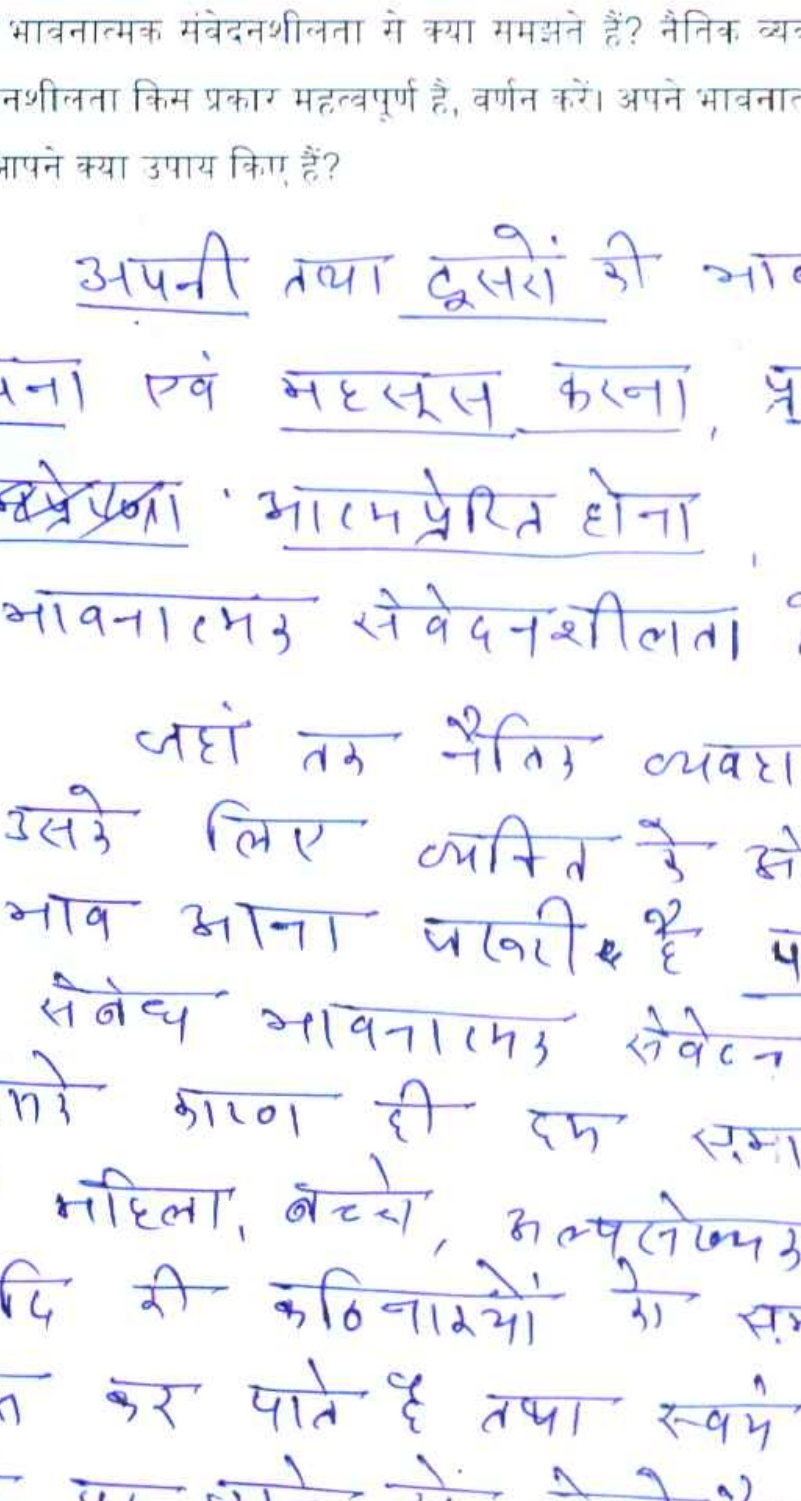 भावनात्मक संवेदनशीलता से क्या समझते हैं? नैतिक व्यव
नशीलता किस प्रकार महत्वपूर्ण है, वर्णन करें। अपने भावनात
आपने क्या उपाय किए हैं?
अपनी तथा दूसरों की भाव
एवं महसूस करना,
आत्मप्रेरित होना,
भावनात्मक संवेदनशीलता
जहां तक नैतिक व्यवहा
उसके लिए व्यक्ति के अं
भाव आना जरूरी है प
संबंध भावनात्मक संवेदन
के कारण ही हम समा
महिला, बच्चे, अल्पसंख्यक
दि की कठिनाइयों को सम
कर पाते है तथा स्वयं